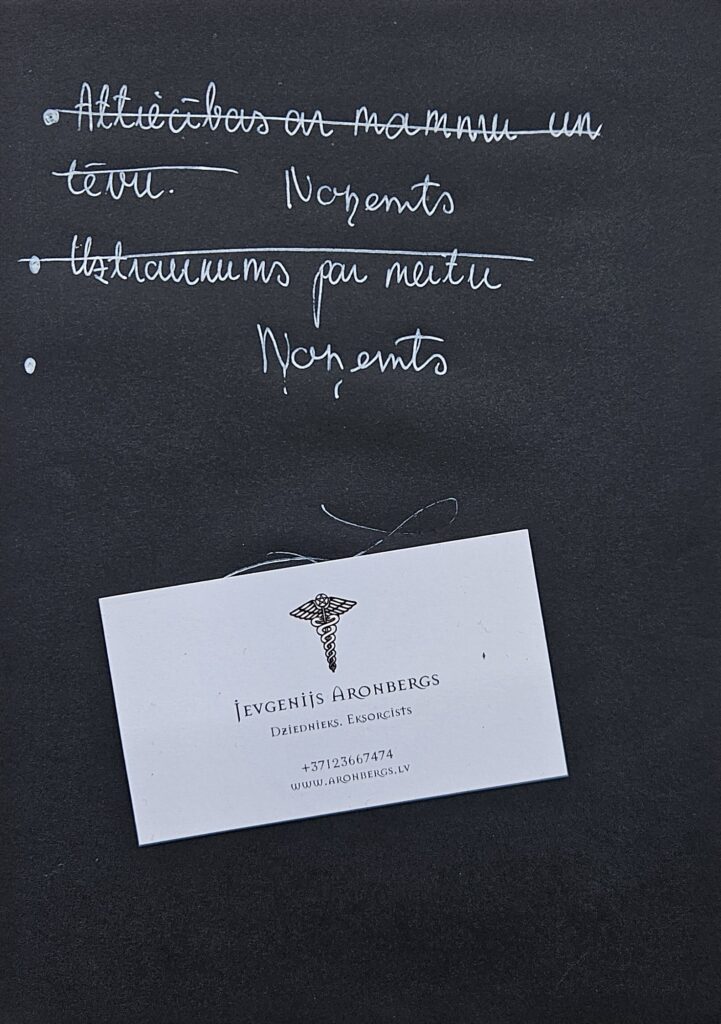 Attiecības ar mammu un
tēvu. Noņemts
Uztraukums par meitu
Noņemts
Jevgenijs Aronbergs
Dziednieks. Eksorcists
+37123667474
www.aronbergs.lv